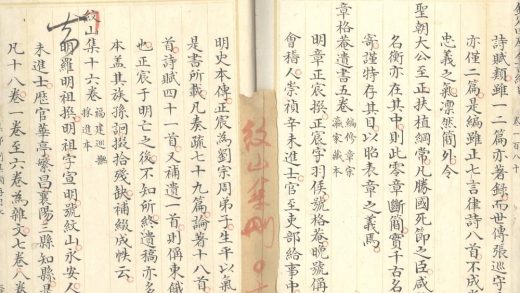 卷一百八十
詩賦類雖一二篇亦著錄而世傳張巡守
亦僅二篇是編雖正七言律詩八首不成
忠義之氣凛然簡外今
聖朝大公至正扶植綱常凡勝國死節之臣咸
名衡亦在其中則此零章斷簡實千古名
寄謹特存其目以昭表章之義焉
章格菴遺書五卷 編修章宗瀛家藏本
明章正宸撰正宸字羽侯號格菴晚號偁
會稽人崇禎辛未進士官至吏部給事中
紋山集
明史本傳正宸為劉宗周弟子生平以氣
是書所載凡奏疏七十九篇論著十八首
首詩賦四十一首又補遺一首則偁東餓
也正宸于明亡之後不知所終遺稿亦名
本蓋其族孫詗掇拾殘缺補綴成帙云
紋山集十六卷 福建巡撫採進本
明羅明祖撰明祖字宣明號紋山永安人
未進士歷官華亭繁昌襄陽三縣知縣是
凡十八卷一卷至六卷為雜文七卷八卷